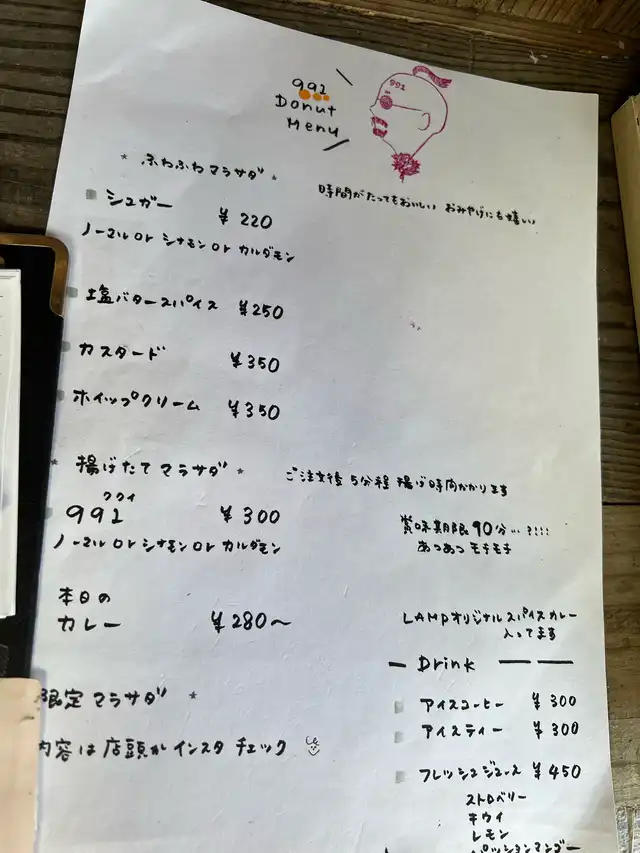 991
Donut
Menu
991
* ふわふわマラサダ *
時間がたってもおいしい おみやげにも嬉しい
シュガー ¥220
ノーマル or シナモン or カルダモン
塩バタースパイス ¥250
カスタード ¥350
ホイップクリーム ¥350
* 揚げたてマラサダ *
ご注文後 5分程 揚げ時間かかります
ククイ
991 ¥300
ノーマル or シナモン or カルダモン
賞味期限90分…?!!!
あつあつ モチモチ
本日の
カレー ¥280〜
LAMPオリジナルスパイスカレー
入ってます
限定マラサダ *
内容は店頭かインスタチェック
Drink
アイスコーヒー ¥300
アイスティー ¥300
フレッシュジュース ¥450
ストロベリー
キウイ
レモン
パッションマンゴー